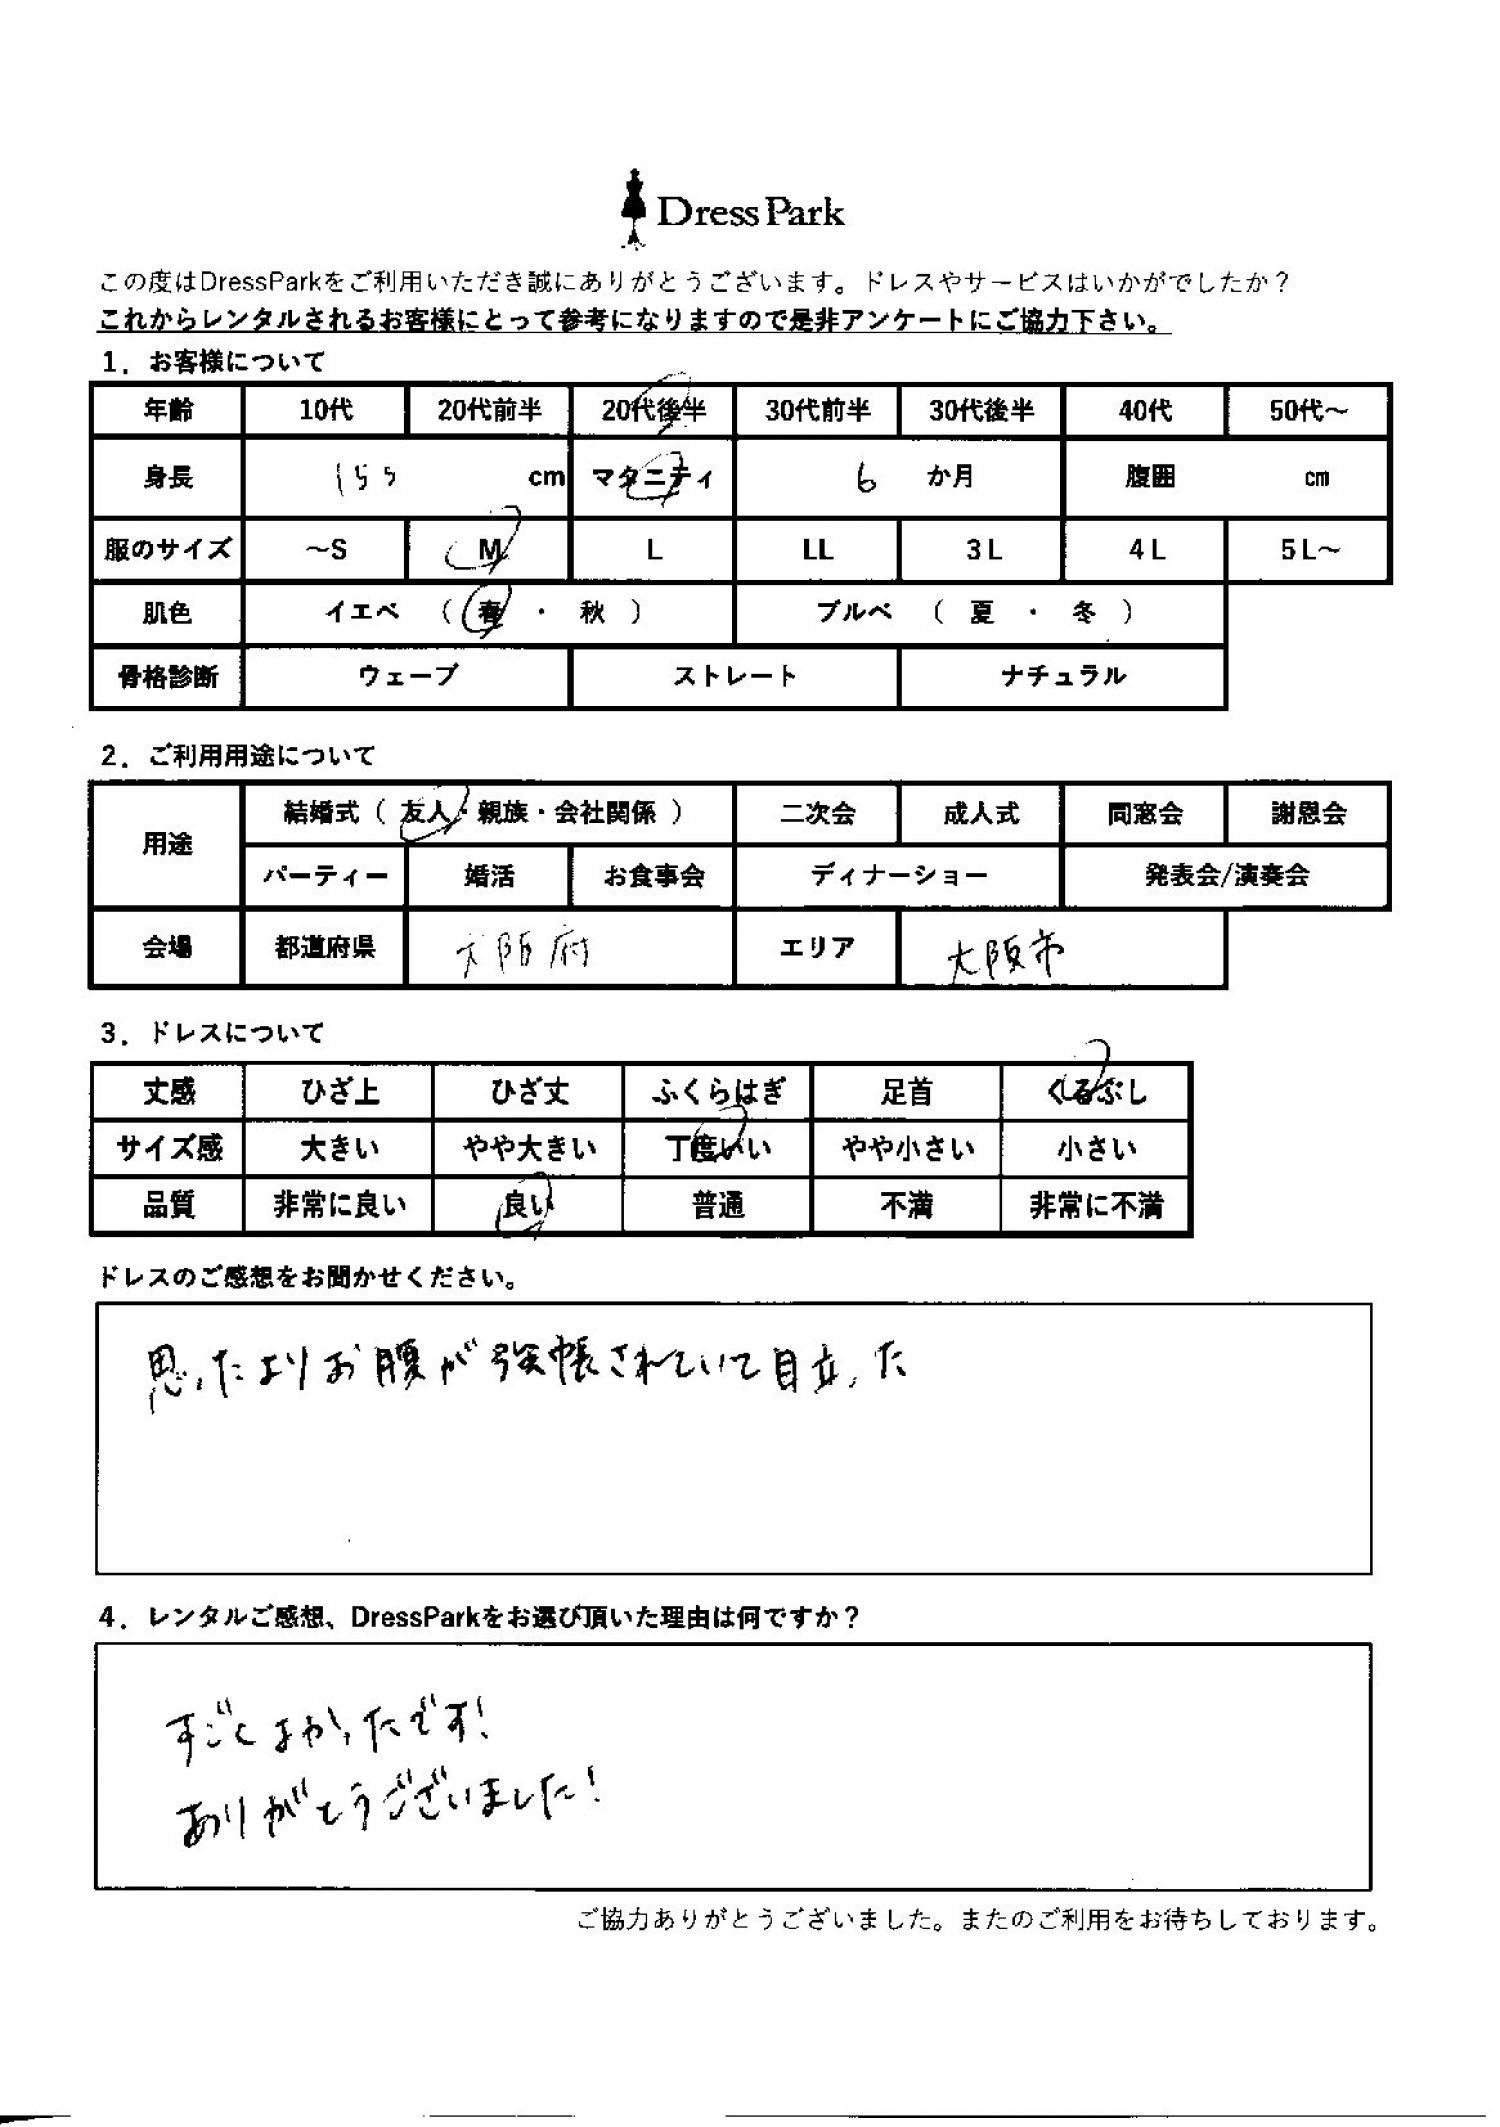 Dress Park
この度はDressParkをご利用いただき誠にありがとうございます。ドレスやサービスはいかがでしたか？
これからレンタルされるお客様にとって参考になりますので是非アンケートにご協力下さい。
1．お客様について
年齢 10代 20代前半 20代後半 30代前半 30代後半 40代 50代～
身長 155 cm マタニティ 6 か月 腹囲 cm
服のサイズ ～S M L LL 3L 4L 5L～
肌色 イエベ （ 春 ・ 秋 ） ブルベ （ 夏 ・ 冬 ）
骨格診断 ウェーブ ストレート ナチュラル
2．ご利用用途について
用途 結婚式（ 友人・親族・会社関係 ） 二次会 成人式 同窓会 謝恩会
パーティー 婚活 お食事会 ディナーショー 発表会/演奏会
会場 都道府県 大阪府 エリア 大阪市
3．ドレスについて
丈感 ひざ上 ひざ丈 ふくらはぎ 足首 くるぶし
サイズ感 大きい やや大きい 丁度いい やや小さい 小さい
品質 非常に良い 良い 普通 不満 非常に不満
ドレスのご感想をお聞かせください。
思ったよりお腹が強帳されていて目立った
4．レンタルご感想、DressParkをお選び頂いた理由は何ですか？
すごくよかったです！
ありがとうございました！
ご協力ありがとうございました。またのご利用をお待ちしております。